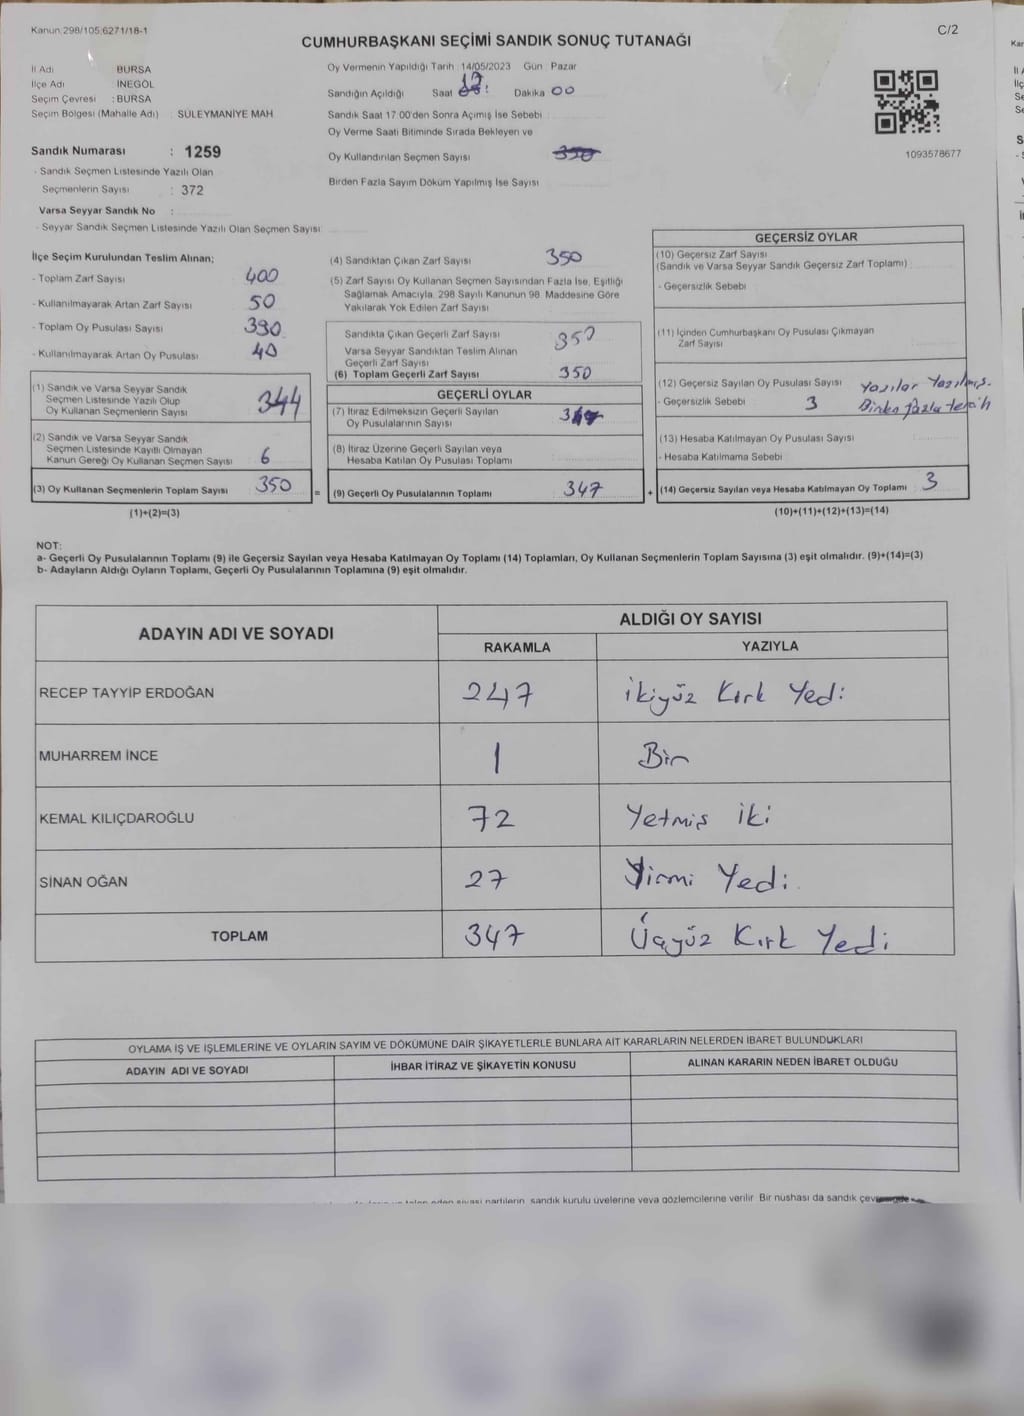 Kanun:298/105;6271/18-1
C/2
CUMHURBAŞKANI SEÇİMİ SANDIK SONUÇ TUTANAĞI
İl Adı BURSA
İlçe Adı İNEGÖL
Seçim Çevresi : BURSA
Seçim Bölgesi (Mahalle Adı) : SÜLEYMANİYE MAH.
Sandık Numarası : 1259
- Sandık Seçmen Listesinde Yazılı Olan
Seçmenlerin Sayısı : 372
Varsa Seyyar Sandık No :
- Seyyar Sandık Seçmen Listesinde Yazılı Olan Seçmen Sayısı:
Oy Vermenin Yapıldığı Tarih : 14/05/2023 Gün : Pazar
Sandığın Açıldığı Saat 17: Dakika 00
Sandık Saat 17:00'den Sonra Açımış İse Sebebi :
Oy Verme Saati Bitiminde Sırada Bekleyen ve
Oy Kullandırılan Seçmen Sayısı 350
Birden Fazla Sayım Döküm Yapılmış İse Sayısı
1093578677
İlçe Seçim Kurulundan Teslim Alınan;
- Toplam Zarf Sayısı 400
- Kullanılmayarak Artan Zarf Sayısı 50
- Toplam Oy Pusulası Sayısı 390
- Kullanılmayarak Artan Oy Pusulası 40
(1) Sandık ve Varsa Seyyar Sandık
Seçmen Listesinde Yazılı Olup
Oy Kullanan Seçmenlerin Sayısı 344
(2) Sandık ve Varsa Seyyar Sandık
Seçmen Listesinde Kayıtlı Olmayan
Kanun Gereği Oy Kullanan Seçmen Sayısı 6
(3) Oy Kullanan Seçmenlerin Toplam Sayısı 350
(1)+(2)=(3)
=
(4) Sandıktan Çıkan Zarf Sayısı 350
(5) Zarf Sayısı Oy Kullanan Seçmen Sayısından Fazla İse, Eşitliği
Sağlamak Amacıyla, 298 Sayılı Kanunun 98. Maddesine Göre
Yakılarak Yok Edilen Zarf Sayısı
Sandıkta Çıkan Geçerli Zarf Sayısı 350
Varsa Seyyar Sandıktan Teslim Alınan
Geçerli Zarf Sayısı
(6) Toplam Geçerli Zarf Sayısı 350
GEÇERLİ OYLAR
(7) İtiraz Edilmeksizin Geçerli Sayılan
Oy Pusulalarının Sayısı 347
(8) İtiraz Üzerine Geçerli Sayılan veya
Hesaba Katılan Oy Pusulası Toplamı
(9) Geçerli Oy Pusulalarının Toplamı 347
+
GEÇERSİZ OYLAR
(10) Geçersiz Zarf Sayısı
(Sandık ve Varsa Seyyar Sandık Geçersiz Zarf Toplamı)
- Geçersizlik Sebebi
(11) İçinden Cumhurbaşkanı Oy Pusulası Çıkmayan
Zarf Sayısı
(12) Geçersiz Sayılan Oy Pusulası Sayısı Yazılar Yazılmış.
- Geçersizlik Sebebi 3 Birka fazla tercih
(13) Hesaba Katılmayan Oy Pusulası Sayısı
- Hesaba Katılmama Sebebi
(14) Geçersiz Sayılan veya Hesaba Katılmayan Oy Toplamı 3
(10)+(11)+(12)+(13)=(14)
NOT:
a- Geçerli Oy Pusulalarının Toplamı (9) ile Geçersiz Sayılan veya Hesaba Katılmayan Oy Toplamı (14) Toplamları, Oy Kullanan Seçmenlerin Toplam Sayısına (3) eşit olmalıdır. (9)+(14)=(3)
b- Adayların Aldığı Oyların Toplamı, Geçerli Oy Pusulalarının Toplamına (9) eşit olmalıdır.
ADAYIN ADI VE SOYADI
ALDIĞI OY SAYISI
RAKAMLA YAZIYLA
RECEP TAYYİP ERDOĞAN 247 ikiyüz Kırk Yedi
MUHARREM İNCE 1 Bir
KEMAL KILIÇDAROĞLU 72 Yetmiş iki
SİNAN OĞAN 27 Yirmi Yedi
TOPLAM 347 Üçyüz Kırk Yedi
OYLAMA İŞ VE İŞLEMLERİNE VE OYLARIN SAYIM VE DÖKÜMÜNE DAİR ŞİKAYETLERLE BUNLARA AİT KARARLARIN NELERDEN İBARET BULUNDUKLARI
ADAYIN ADI VE SOYADI İHBAR İTİRAZ VE ŞİKAYETİN KONUSU ALINAN KARARIN NEDEN İBARET OLDUĞU
partilerin, sandık kurulu üyelerine veya gözlemcilerine verilir. Bir nüshası da sandık